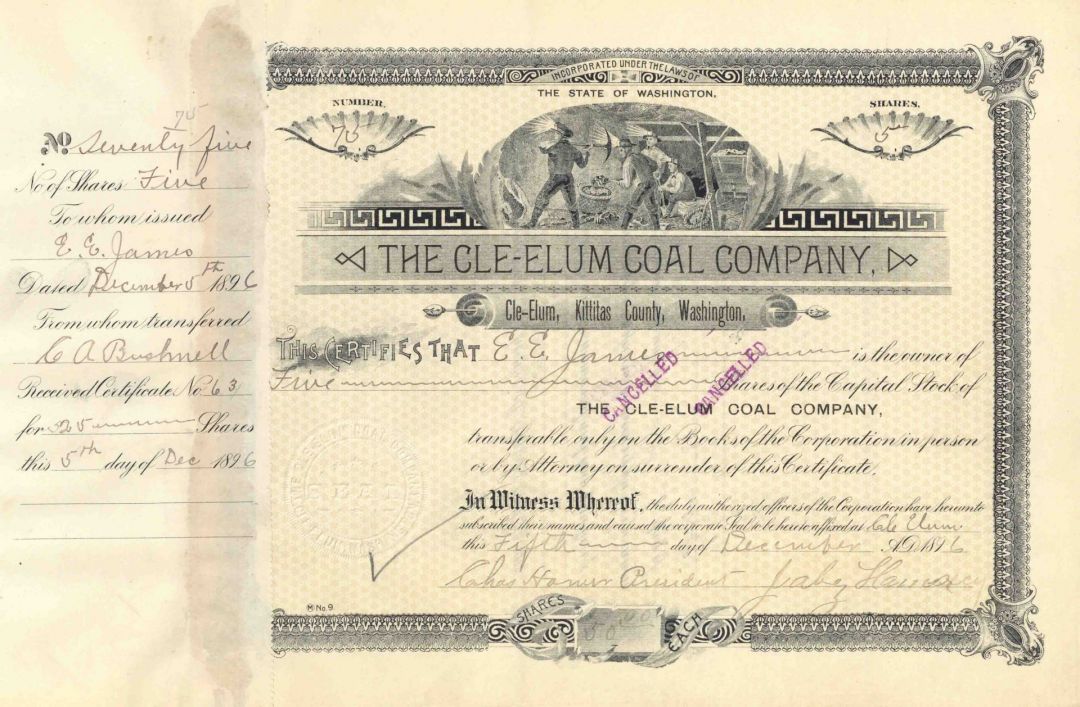 75
No Seventy five
No of Shares Five
To whom issued
E. E. James
Dated December 5th 1896
From whom transferred
C A Bushnell
Received Certificate No. 63
for 525 Shares
this 5th day of Dec 1896
INCORPORATED UNDER THE LAWS OF
THE STATE OF WASHINGTON.
NUMBER.
75
SHARES.
5
THE CLE-ELUM COAL COMPANY,
Cle-Elum, Kittitas County, Washington,
THIS CERTIFIES THAT E. E. James is the owner of
Five Shares of the Capital Stock of
CANCELLED
CANCELLED
THE CLE-ELUM COAL COMPANY,
transferable only on the Books of the Corporation in person
or by Attorney on surrender of this Certificate.
SEAL
In Witness Whereof, the duly authorized officers of the Corporation have hereunto
subscribed their names and caused the corporate Seal to be hereto affixed at Cle Elum
this Fifth day of December A.D. 1896
Chas Hamer President
M No. 9.
SHARES
EACH